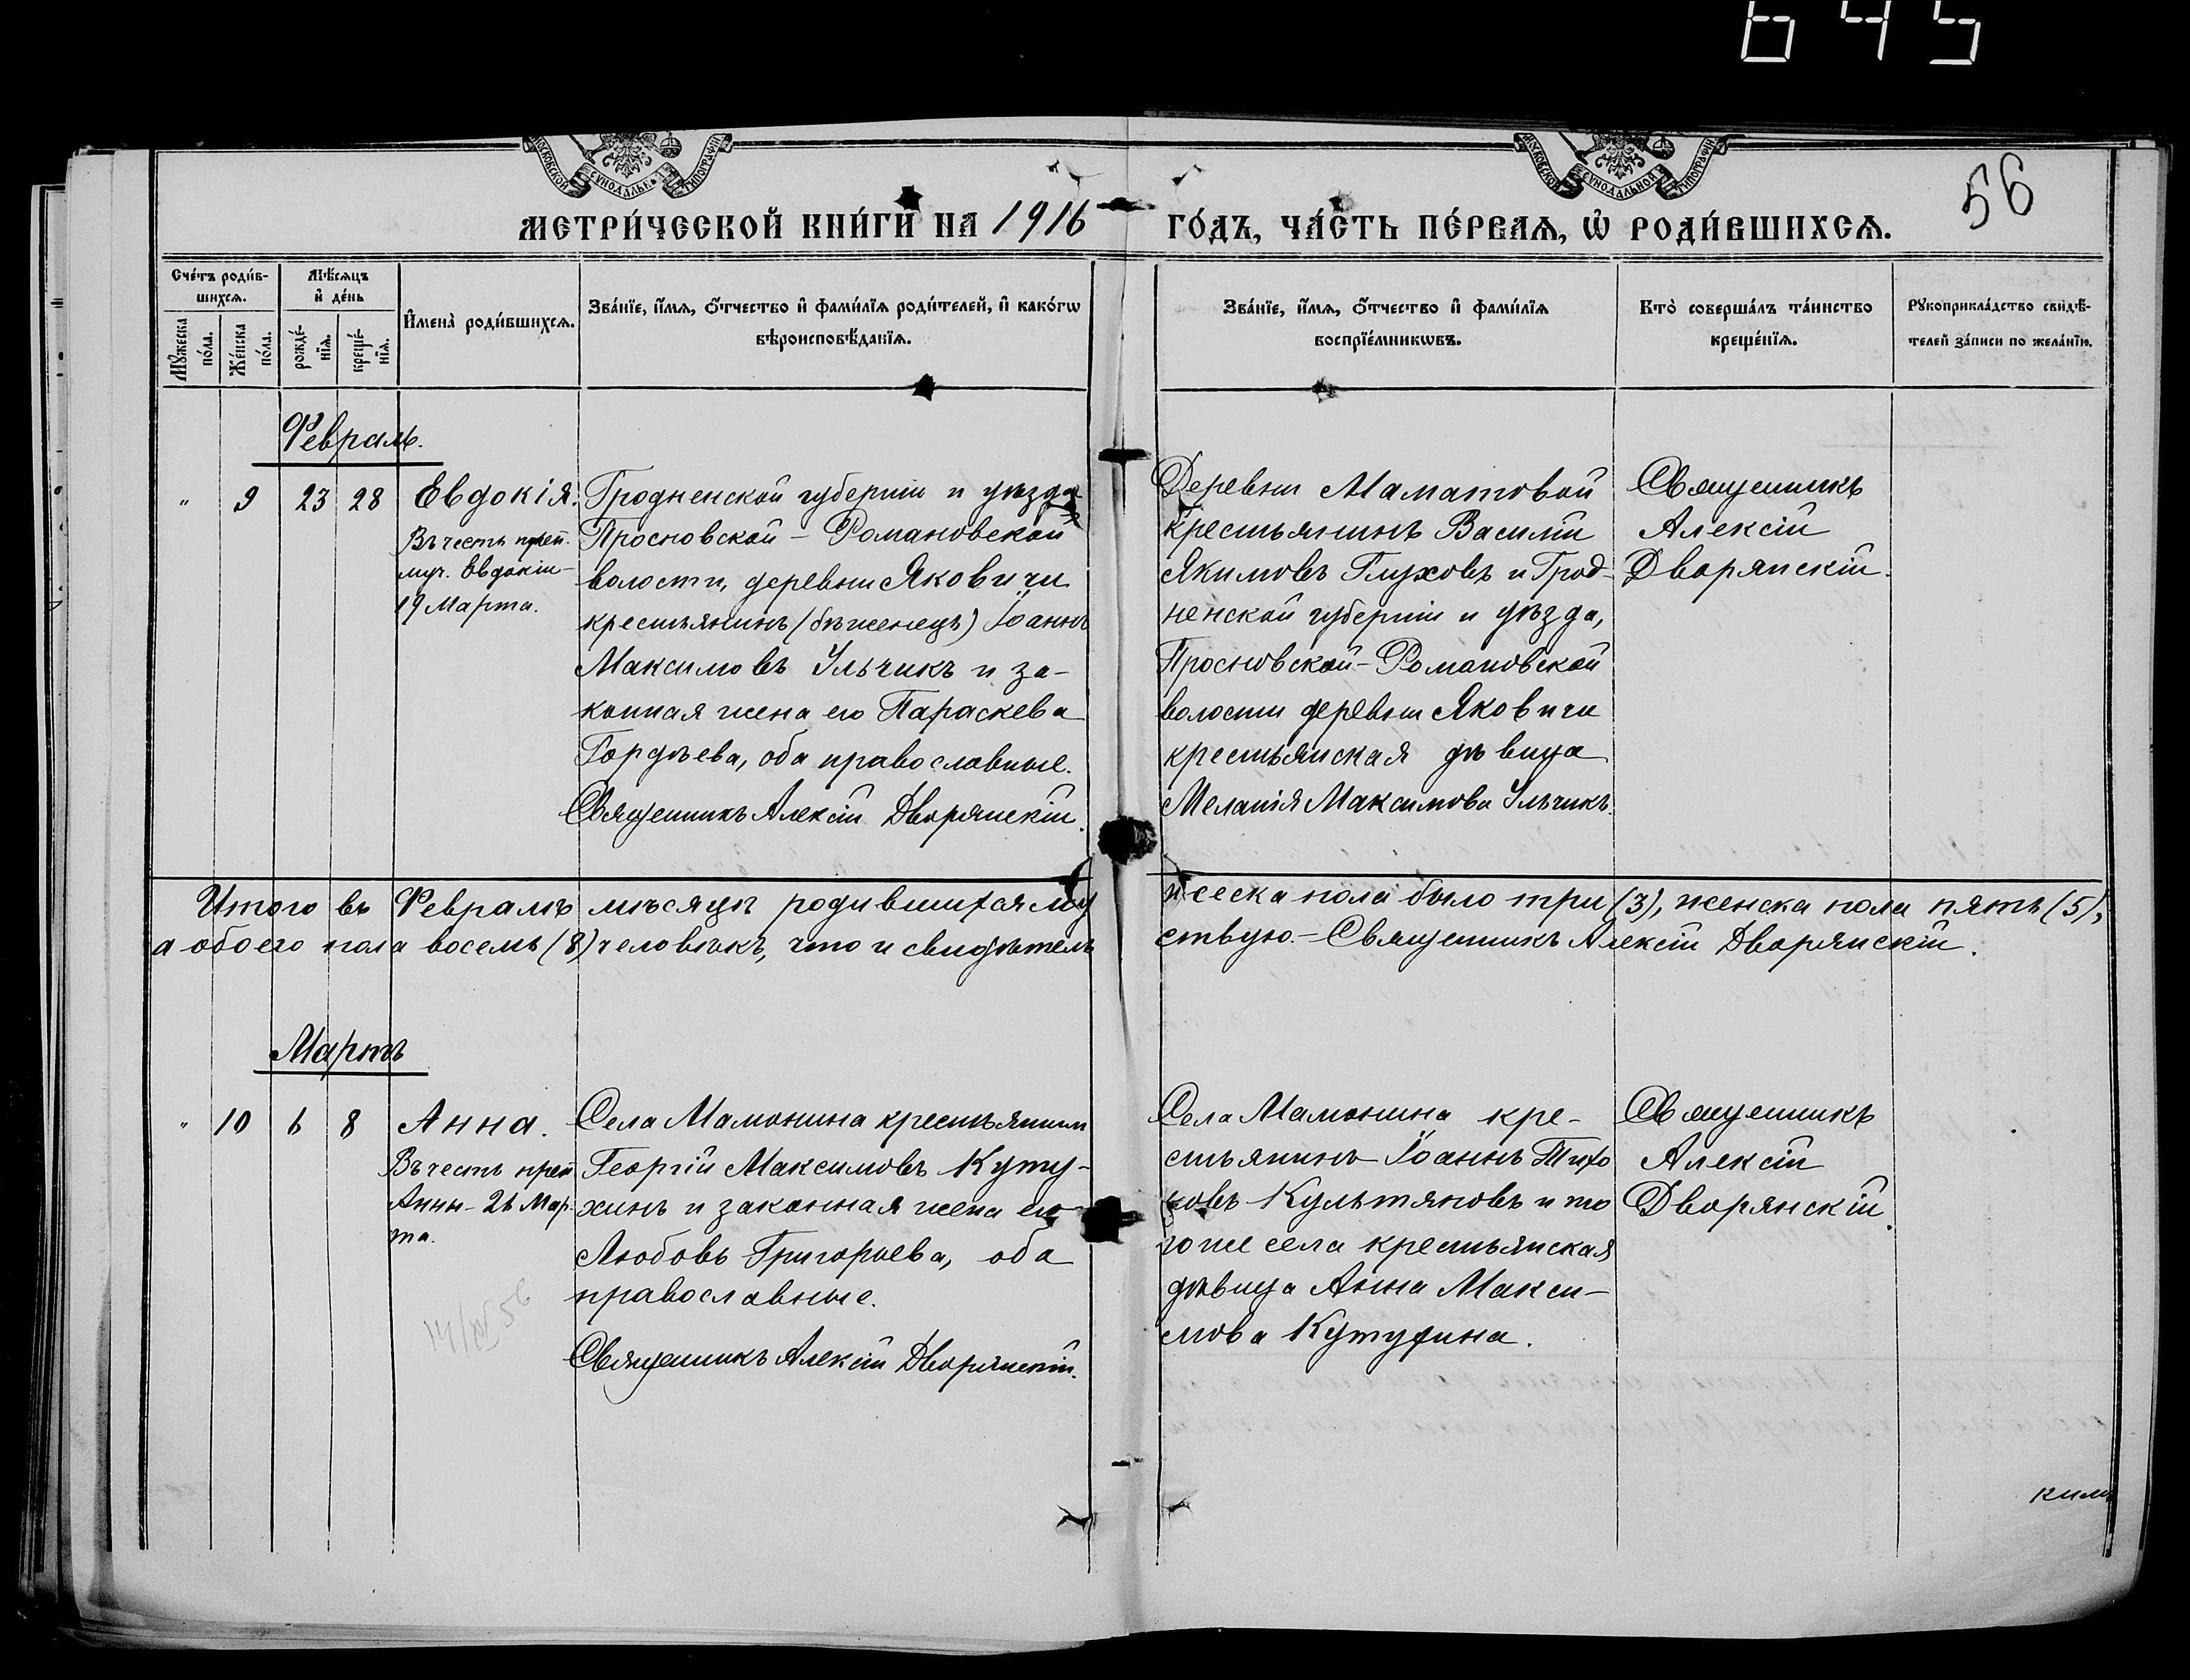 645
МОСКОВСКОЙ СѴНОДАЛЬН ТИПОГРАФІИ
МОСКОВСКОЙ СѴНОДАЛЬНОЙ ТИПОГРАФІИ
56
МЕТРИ́ЧЕСКОЙ КНИ́ГИ НА 1916 ГО́ДЪ, ЧА́СТЬ ПЕ́РВАѦ, Ѡ҆ РОДИ́ВШИХСѦ.
Сче́тъ роди́в-
шихсѧ.
Мꙋ́жеска
по́ла.
Же́нска
по́ла.
Мѣ́сѧцъ
и҆ де́нь
рожде́-
нїѧ.
креще́-
нїѧ.
И҆мена̀ роди́вшихсѧ.
Зва́нїе, и҆́мѧ, ѻ҆́тчество и҆ фами́лїѧ роди́телей, и҆ како́гѡ
вѣроисповѣ́данїѧ.
Зва́нїе, и҆́мѧ, ѻ҆́тчество и҆ фами́лїѧ
воспрїе́мникѡвъ.
Кто̀ соверша́лъ та́инство
креще́нїѧ.
Рꙋкоприкла́дство свидѣ́-
телей за́писи по жела́нїю.
Февраль.
" 9 23 28 Евдокія.
Въ честь преп.
муч. Евдокіи –
19 Марта.
Гродненской губерніи и уѣзда
Просновской – Романовской
волости, деревни Яковичи
крестьянинъ (бѣженецъ) Іоаннъ
Максимовъ Ульчикъ и за-
конная жена его Параскева
Гордѣева, оба православные.
Священникъ Алексій Дворянскій.
Деревни Маматовой
крестьянинъ Василій
Якимовъ Глуховъ и Грод-
ненской губерніи и уѣзда,
Просновской – Романовской
волости деревни Яковичи
крестьянская дѣвица
Меланія Максимова Ульчикъ.
Священникъ
Алексій
Дворянскій.
Итого въ Февралѣ мѣсяцѣ родившихся му жеска пола было три (3), женска пола пять (5),
а обоего пола восемь (8) человѣкъ, что и свидѣтель ствую. – Священникъ Алексій Дворянскій.
Мартъ
" 10 6 8 Анна.
Въ честь преп
Анны – 26 Мар-
та.
Села Мамонина крестьянин
Георгій Максимовъ Куту-
хинъ и законная жена его
Любовь Григорьева, оба
православные.
Священникъ Алексій Дворянскій.
Села Мамонина кре-
стьянинъ Іоаннъ Тихо
новъ Культяповъ и то
го же села крестьянская
дѣвица Анна Макси-
мова Кутухина.
Священникъ
Алексій
Дворянскій.